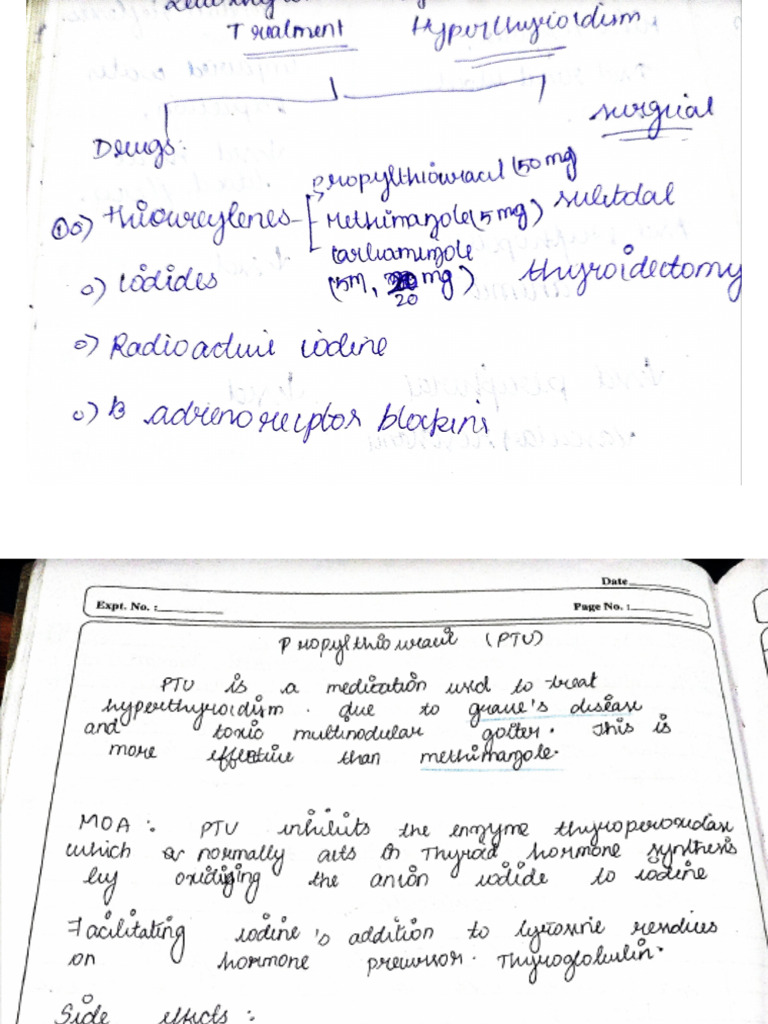 Treatment Hyperthyroidism
surgical
Drugs:
① o) thioureylenes - propylthiouracil (50 mg
methimazole (5 mg)
carbamizole
(5m, 20 mg)
20
subtotal
thyroidectomy
o) iodides
o) Radioactive iodine
o) B adrenoreceptor blockers
Date
Expt. No. :
Page No. :
Propylthiouracil (PTU)
PTU is a medication used to treat
hyperthyroidism. due to grave's disease
and toxic multinodular goiter. This is
more effective than methimazole.
MOA : PTU inhibits the enzyme thyroperoxidase
which normally acts in Thyroid hormone synthesis
by oxidizing the anion iodide to iodine
Facilitating iodine's addition to tyrosine residues
on hormone precursor. Thyroglobulin.
Side effects :